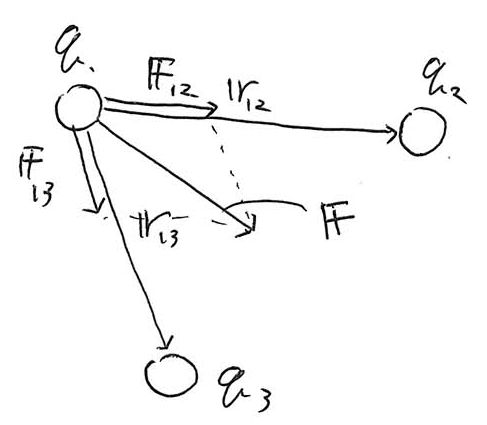 q₁
F₁₂
r₁₂
q₂
F₁₃
r₁₃
F
q₃